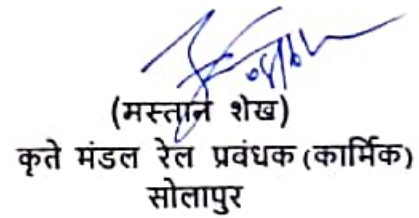 (मस्तान शेख)
कृते मंडल रेल प्रवंधक (कार्मिक)
सोलापुर